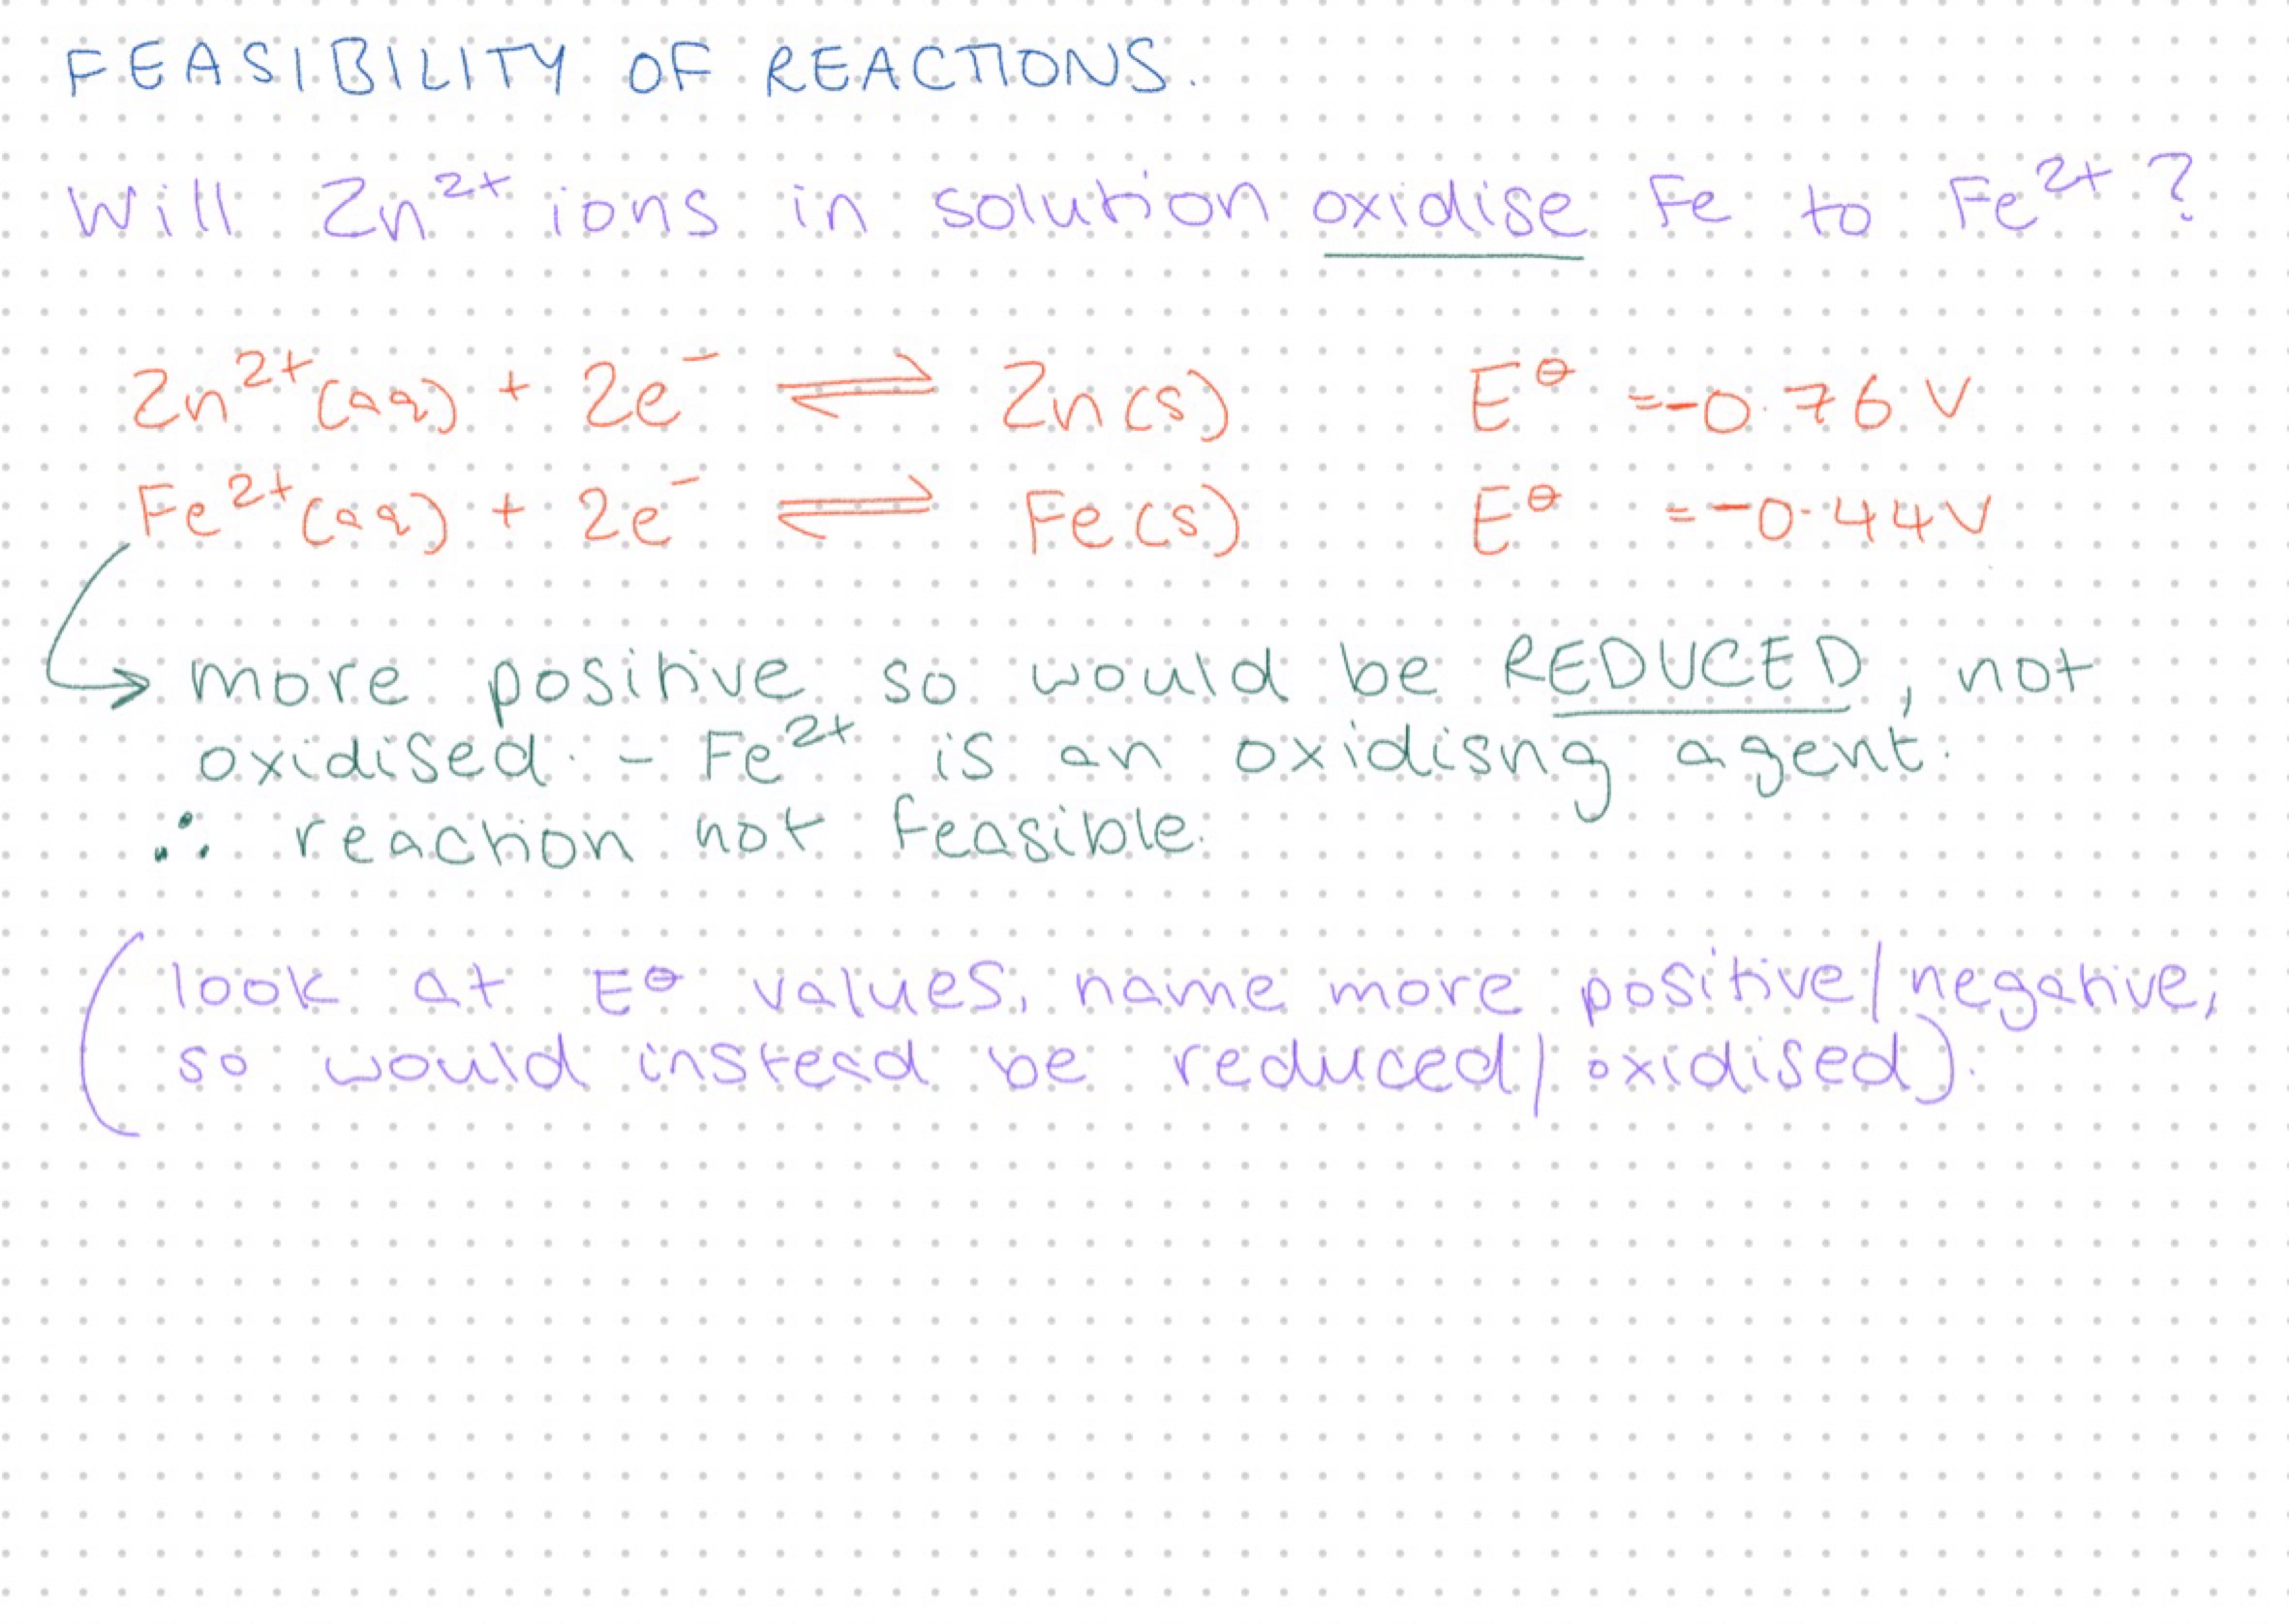 FEASIBILITY OF REACTIONS.
Will Zn²⁺ ions in solution oxidise Fe to Fe²⁺?
Zn²⁺(aq) + 2e⁻ ⇌ Zn(s) E⊖ = -0.76 V
Fe²⁺(aq) + 2e⁻ ⇌ Fe(s) E⊖ = -0.44V
→ more positive so would be REDUCED, not
oxidised. - Fe²⁺ is an oxidisng agent.
∴ reaction not feasible.
(look at E⊖ values, name more positive/negative,
so would instead be reduced/oxidised).